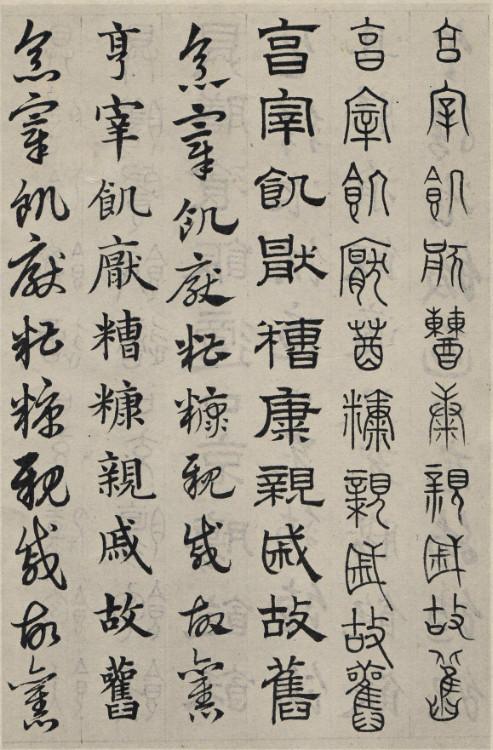 亨宰飢厭糟糠親戚故舊
亨宰飢厭糟糠親戚故舊
亨宰飢厭糟糠親戚故舊
亨宰飢厭糟糠親戚故舊
亨宰飢厭糟糠親戚故舊
亨宰飢厭糟糠親戚故舊